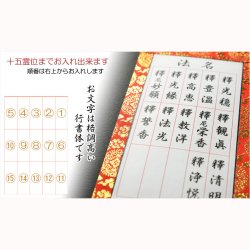 十五霊位までお入れ出来ます
順番は右上からお入れします
⑤④③②①
⑩⑨⑧⑦⑥
⑮⑭⑬⑫⑪
お文字は格調高い
行書体です
法名
釋観眞
釋豊温
釋高恵
釋光縁
釋尼妙願
釋清明
釋尼栄香
釋教洋
釋法光
釋誓香
釋浄悦